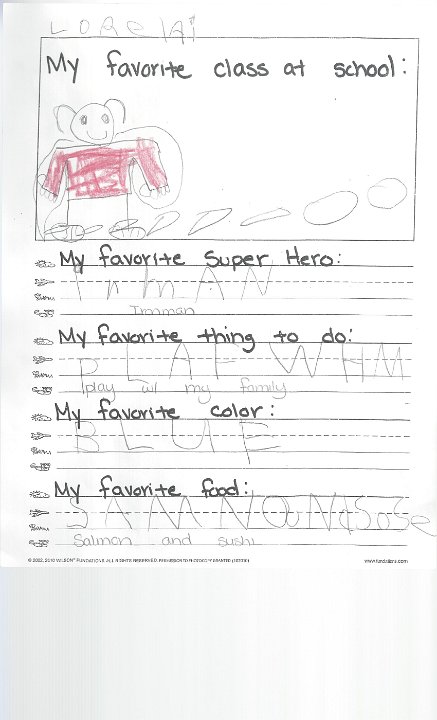 LORElAi
My favorite class at school:
My favorite Super Hero:
IrnmAN
Ironman
My favorite thing to do:
PLAF WHM
play w/ my family
My favorite color:
BLUE
My favorite food:
SAMNOUN
Salmon and sushi
© 2002, 2010 WILSON FUNDATIONS. ALL RIGHTS RESERVED. PERMISSION TO PHOTOCOPY GRANTED
www.fundations.com